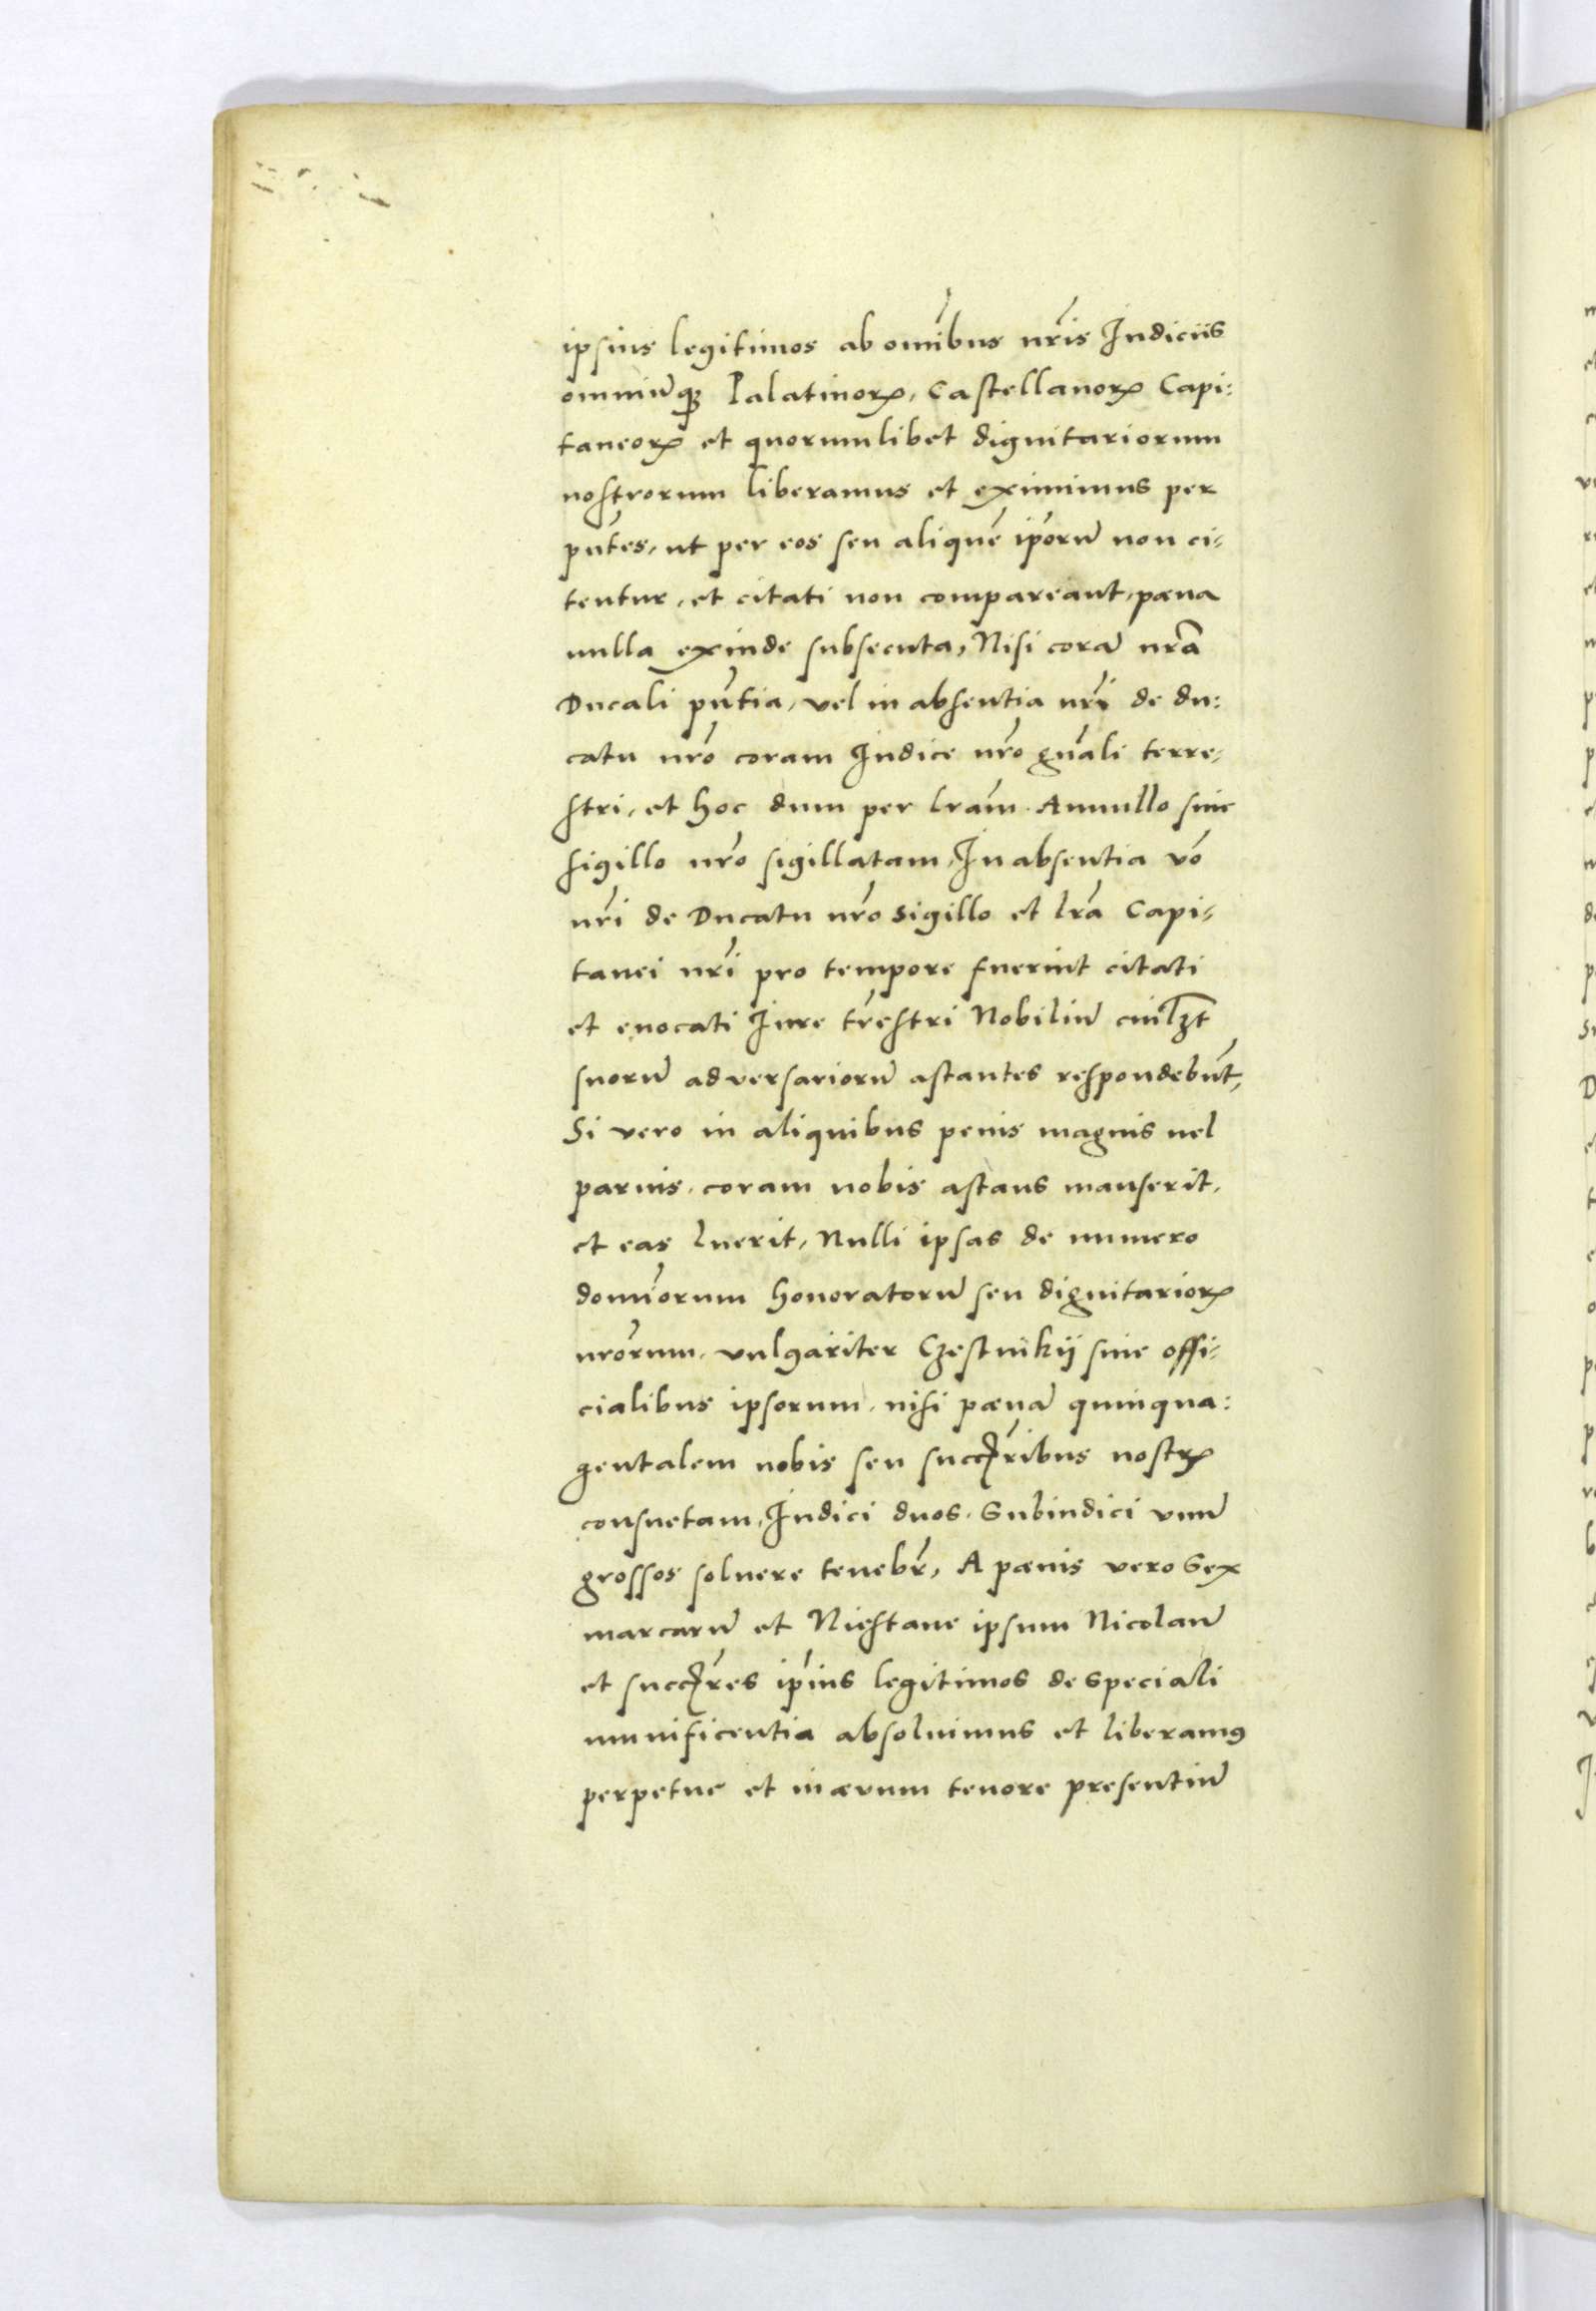 ipsius legitimos ab om̃ibus nr̃is Iudiciis
omniũqꝫ Palatinoꝝ, Castellanoꝝ Capi:
taneoꝝ et quorumlibet dignitariorum
nostrorum liberamus et eximimus per
pñtes, ut per eos seu aliquẽ ip̃orũ non ci-
tentur, et citati non compareant, pæna
nulla exinde subsecuta, Nisi corã nr̃a
Ducali pñtia, vel in absentia nr̃i de du:
catu nr̃o coram Iudice nr̃o gñali terre-
stri, et hoc dum per lr̃am Annullo siue
sigillo nr̃o sigillatam, In absentia võ
nr̃i de Ducatu nr̃o sigillo et lr̃a Capi-
tanei nr̃i pro tempore fuerint citati
et euocati Iure tr̃estri Nobiliũ cuilꝫt
suorũ adversariorũ astantes respondebũt,
Si vero in aliquibus penis magnis uel
paruis, coram nobis astans manserit,
et eas luerit, Nulli ipsas de numero
domĩorum honoratorũ seu dignitarioꝝ
nr̃orum, vulgariter Czestnikij siue offi-
cialibus ipsorum, nisi pænã quinqua:
gentalem nobis seu succr̃ibus nostꝝ
consuetam, Iudici duos, Subiudici vnũ
grossos soluere tenebr̃, A pænis vero Sex
marcarũ et Niestane ipsum Nicolaũ
et succr̃es ip̃ius legitimos de speciali
munificentia absoluimus et liberamꝰ
perpetue et in ævum tenore presentiũ